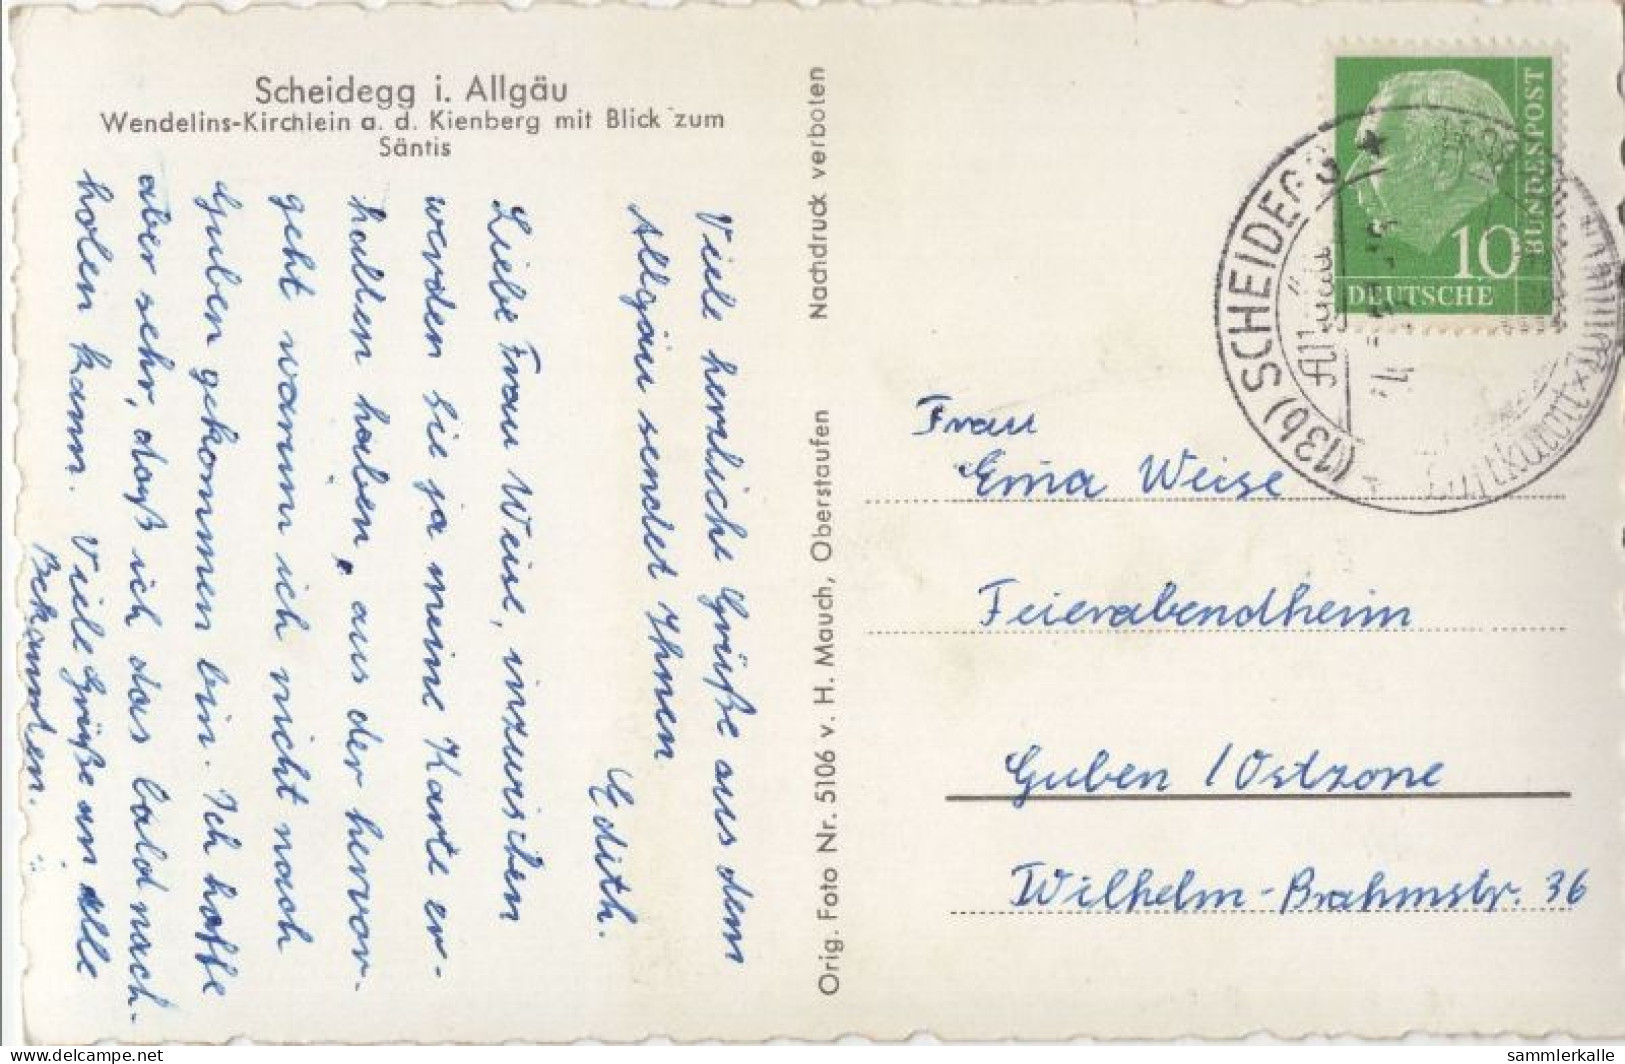 Scheidegg i. Allgäu
Wendelins-Kirchlein a. d. Kienberg mit Blick zum
Säntis
Viele herzliche Grüße aus dem
Allgäu sendet Ihnen
Edith.
Liebe Frau Weise, inzwischen
werden Sie ja meine Karte er-
halten haben, aus der hervor-
geht warum ich nicht nach
Guben gekommen bin. Ich hoffe
aber sehr, daß ich das bald nach-
holen kann. Viele Grüße an alle
Bekannten.
Orig. Foto Nr. 5106 v. H. Mauch, Oberstaufen Nachdruck verboten
DEUTSCHE
BUNDESPOST
10
(13b) SCHEIDEGG
Allgäu
Luftkurort
Frau
Erna Weise
Feierabendheim
Guben / Ostzone
Wilhelm-Brahmstr. 36
delcampe.net
sammlerkalle